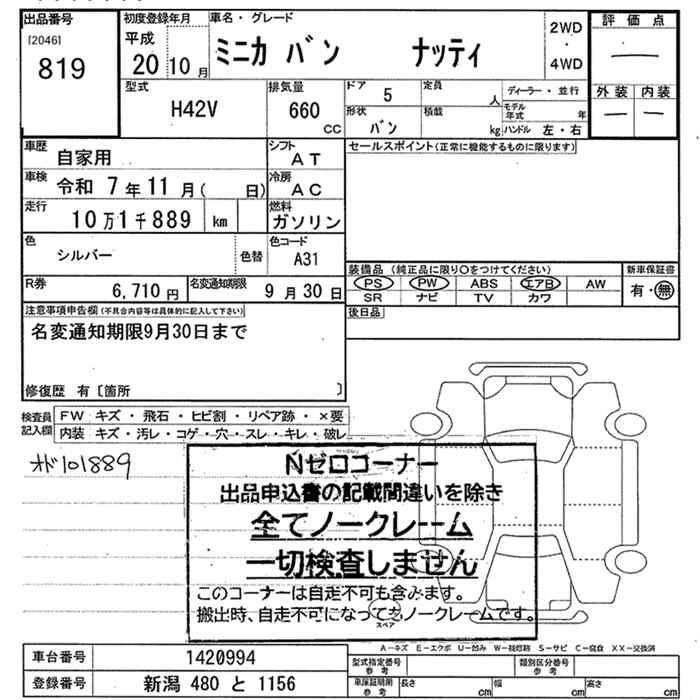 出品番号
[2046]
819
初度登録年月
平成
20 10 月
車名・グレード
ミニカ バン ナッティ
2WD
・
4WD
評価点
—
外装 内装
— —
型式
H42V
排気量
660
CC
ドア
5
定員
人
形状
バン
積載
kg
ディーラー・並行
モデル年式
年
ハンドル 左・右
車歴
自家用
シフト
AT
車検
令和 7年 11月( 日)
冷房
AC
走行
10万1千889 km
燃料
ガソリン
色
シルバー
色替
色コード
A31
R券
6,710 円
名変通知期限
9月30日
セールスポイント(正常に機能するものに限ります)
装備品(純正品に限り○をつけてください)
PS PW ABS エアB AW
SR ナビ TV カワ
新車保証書
有・無
後日品
注意事項申告欄(不具合内容等は具体的に記入して下さい)
名変通知期限9月30日まで
修復歴 有〔箇所 〕
検査員記入欄
FW キズ・飛石・ヒビ割・リペア跡・×要
内装 キズ・汚レ・コゲ・穴・スレ・キレ・破レ
オド101889
Nゼロコーナー
出品申込書の記載間違いを除き
全てノークレーム
一切検査しません
このコーナーは自走不可も含みます。
搬出時、自走不可になってもノークレームです。
スペア
A−キズ E−エクボ U−凹み W−補修跡 S−サビ C−腐食 XX−交換済
車台番号
1420994
登録番号
新潟 480 と 1156
型式指定番号
参考
類別区分番号
参考
車庫証明用
参考
長さ cm 幅 cm 高さ cm